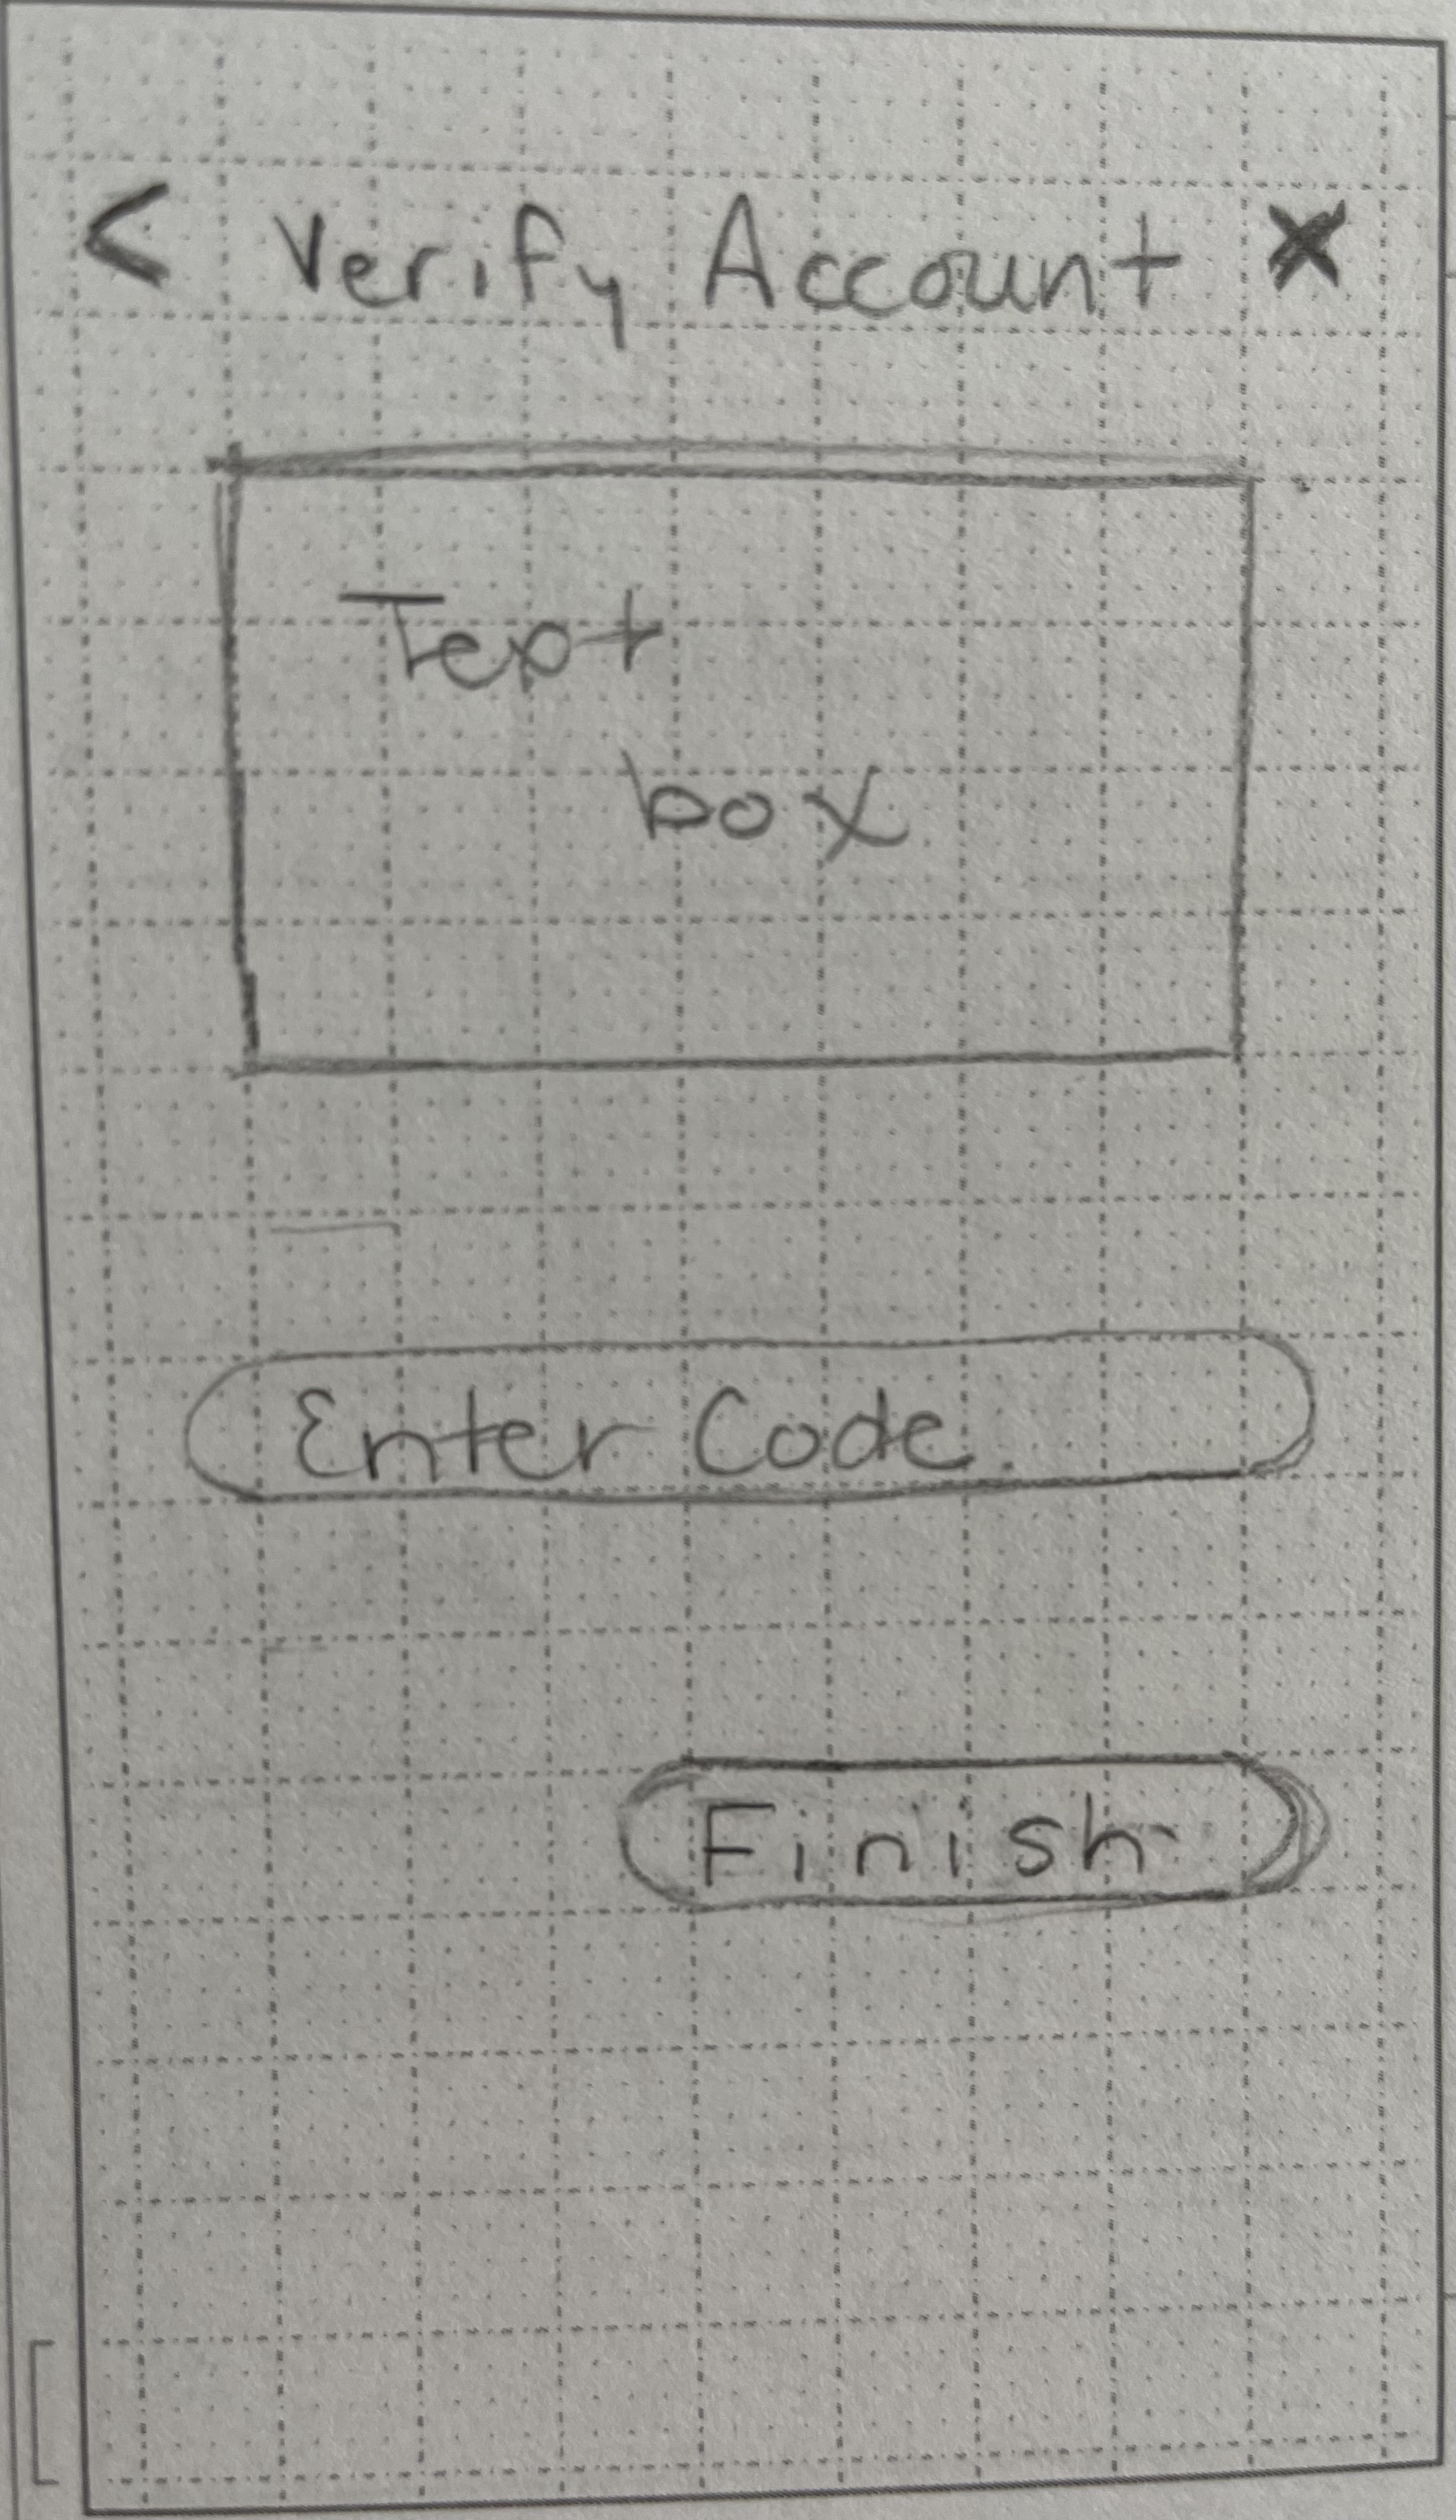 < Verify Account X
Text
box
Enter Code
Finish